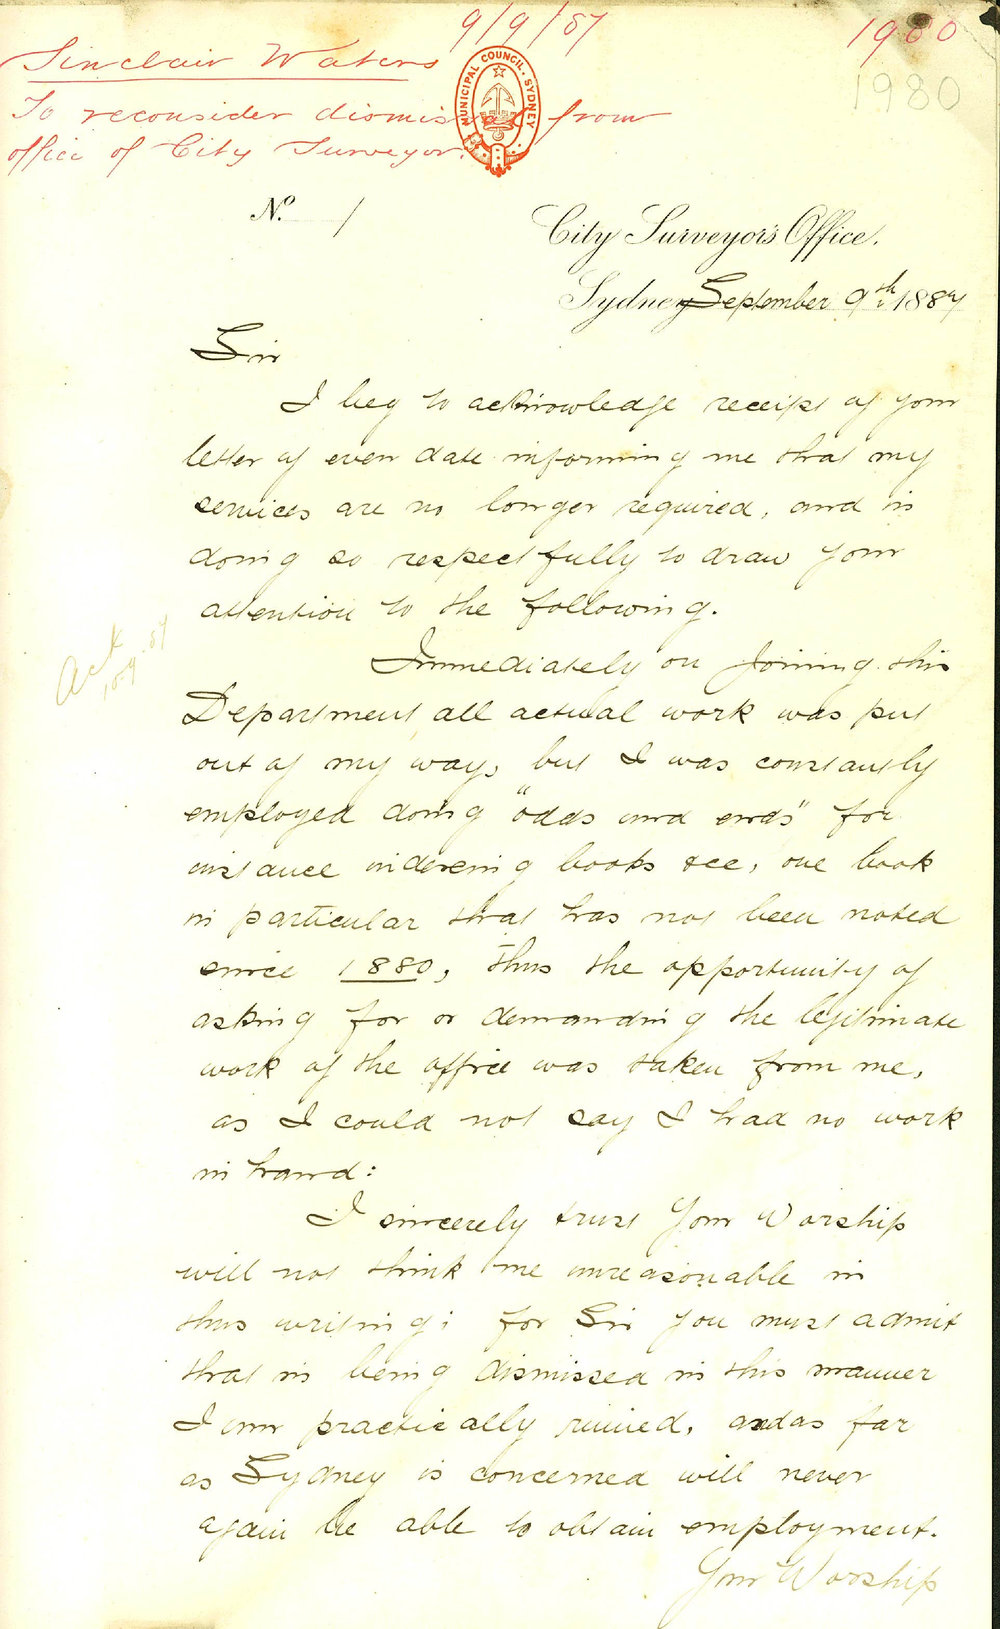 9/9/87
1980
Sinclair Waters
1980
MUNICIPAL COUNCIL. SYDNEY
To reconsider dismissal from
office of City Surveyor.
No. 1
City Surveyor's Office.
Sydney September 9th 1887
Sir
I beg to acknowledge receipt of your
letter of even date informing me that my
services are no longer required, and in
doing so respectfully to draw your
attention to the following.
Ack
10.9.87
Immediately on joining this
Department all actual work was put
out of my way, but I was constantly
employed doing "odds and ends" for
instance indexing books &ce, one book
in particular that has not been noted
since 1880, thus the opportunity of
asking for or demanding the legitimate
work of the office was taken from me,
as I could not say I had no work
in hand:
I sincerely trust Your Worship
will not think me unreasonable in
thus writing; for Sir you must admit
that in being dismissed in this manner
I am practically ruined, and as far
as Sydney is concerned will never
again be able to obtain employment.
Your Worship